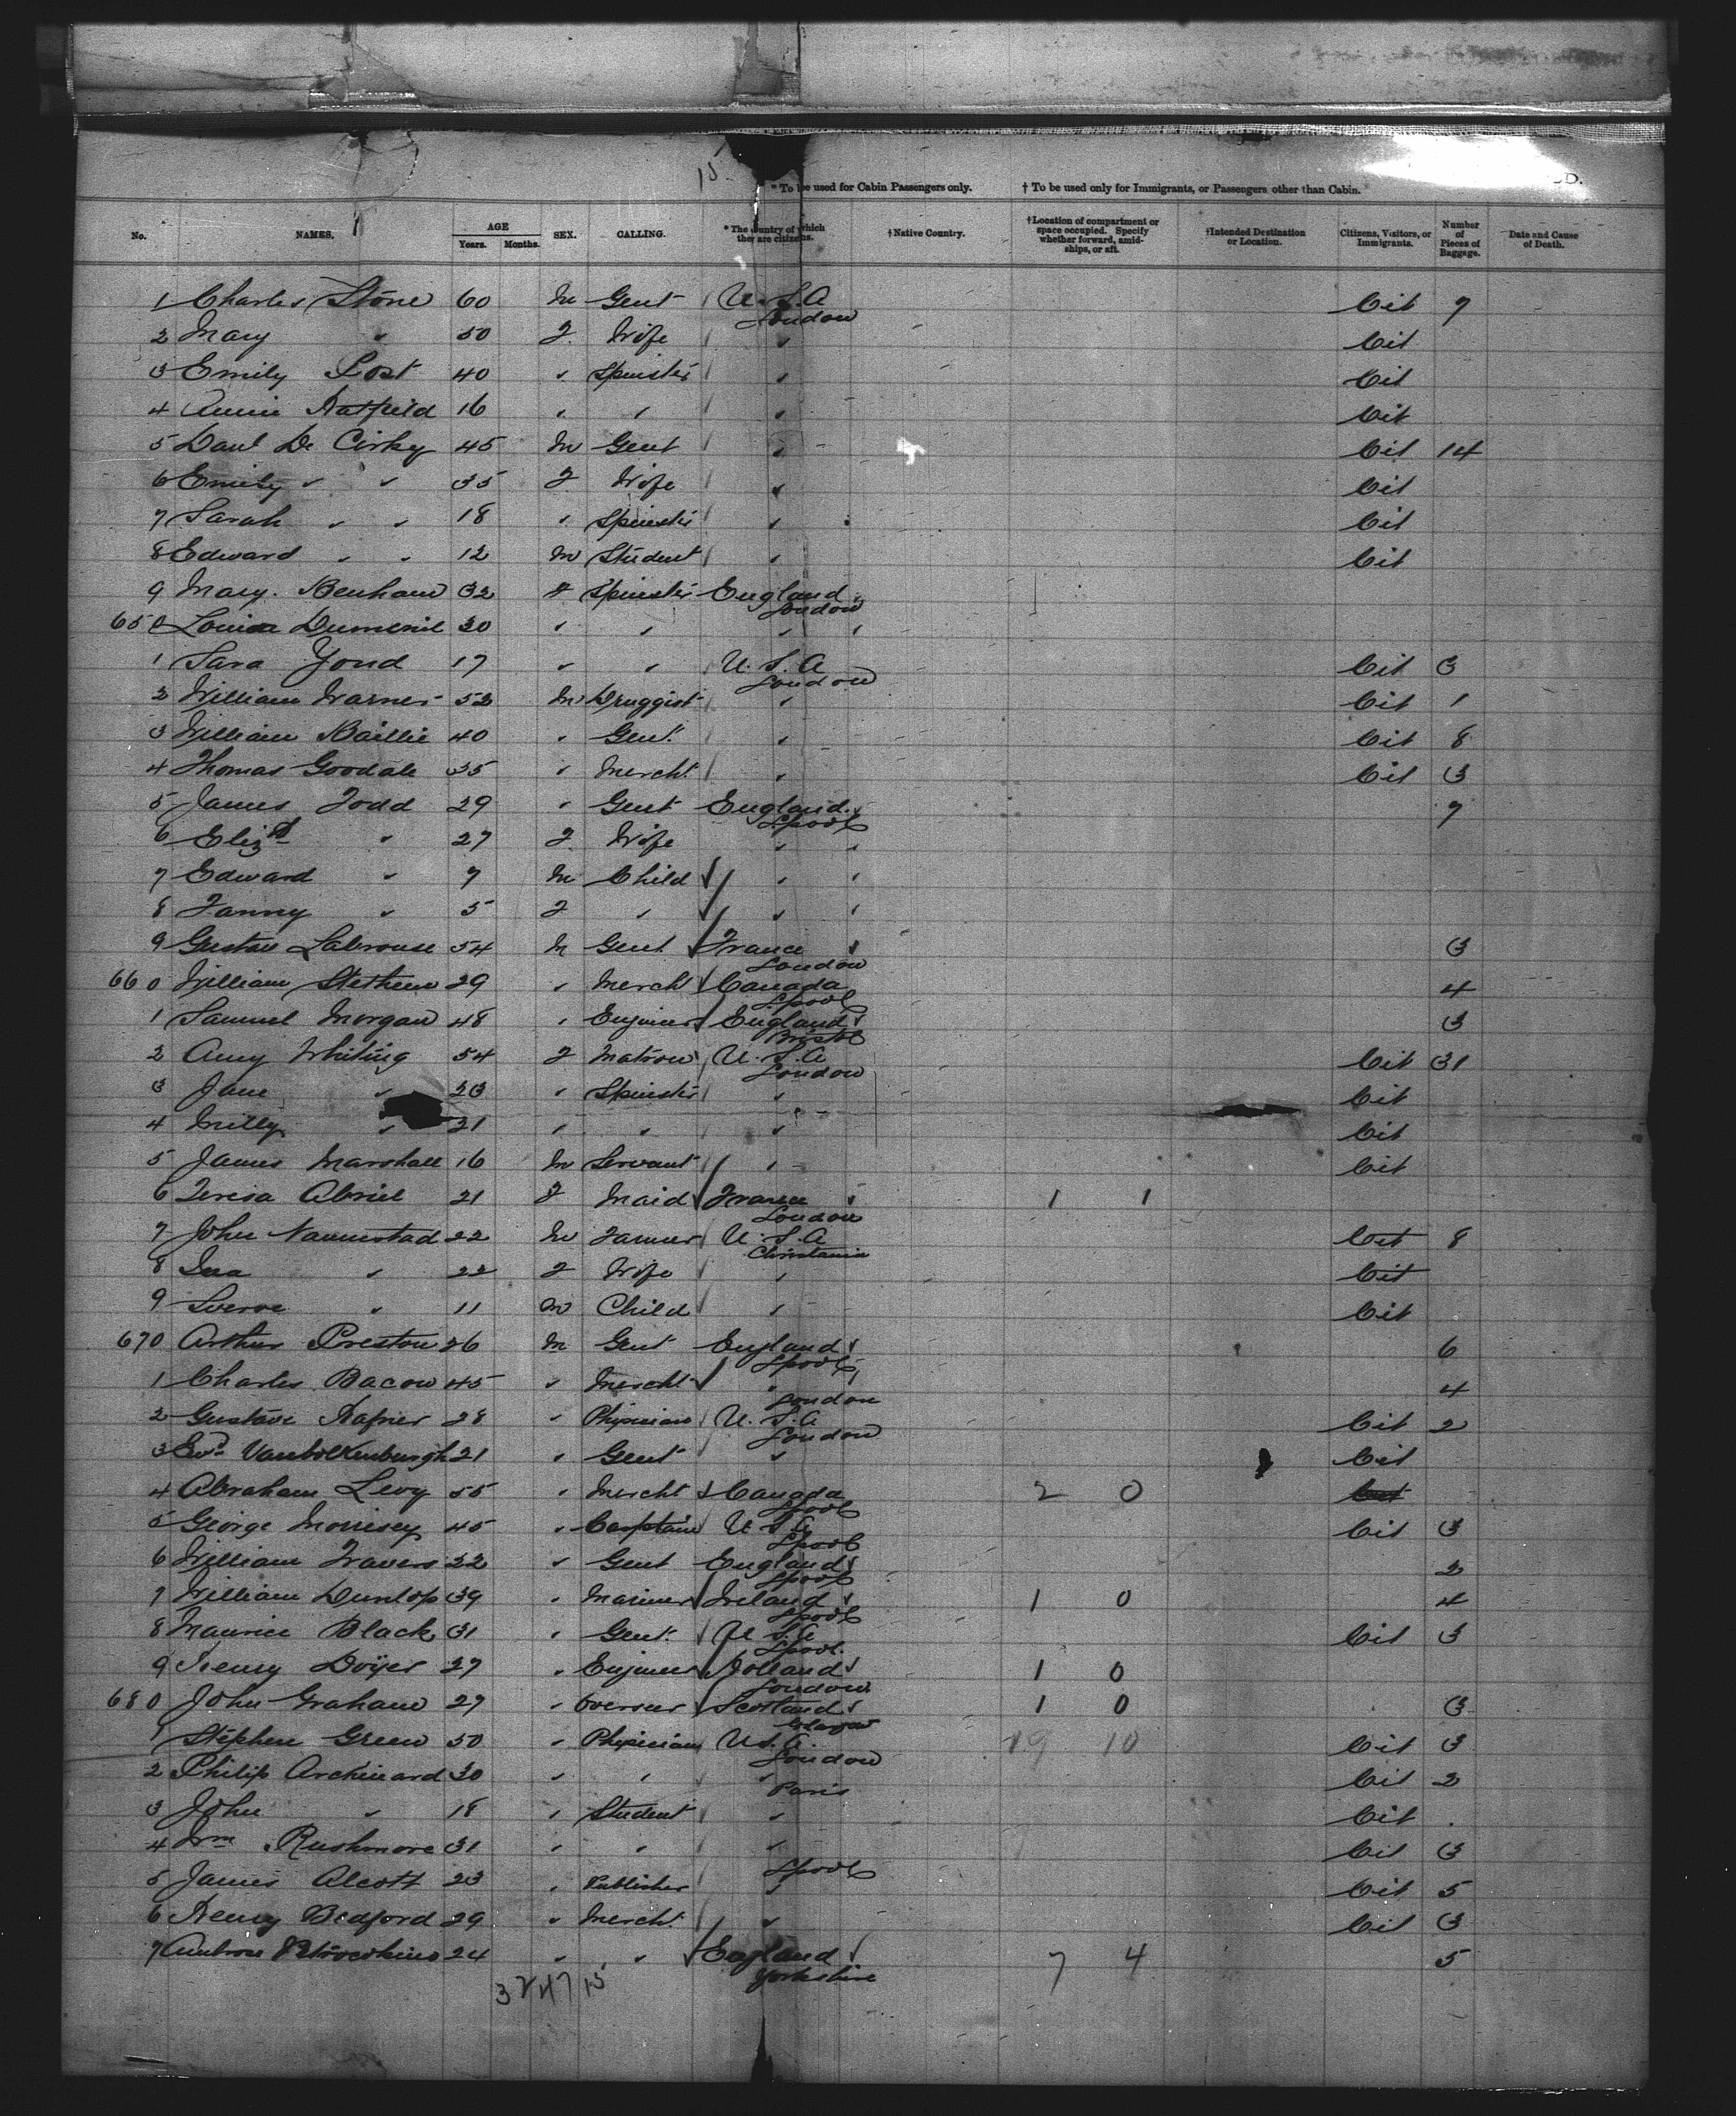 15
* To be used for Cabin Passengers only. † To be used only for Immigrants, or Passengers other than Cabin.
No. NAMES. AGE Years. Months. SEX. CALLING. * The country of which they are citizens. † Native Country. † Location of compartment or space occupied. Specify whether forward, amidships, or aft. † Intended Destination or Location. Citizens, Visitors, or Immigrants. Number of Pieces of Baggage. Date and Cause of Death.
1 Charles Stone 60 M Gent U.S.A London Cit 7
2 Mary " 50 F Wife " Cit
3 Emily Post 40 " Spinster " Cit
4 Annie Hatfield 16 " " " Cit
5 Paul De Cisky 45 M Gent " Cit 14
6 Emily " " 35 F Wife " Cit
7 Sarah " " 18 " Spinster " Cit
8 Edward " " 12 M Student " Cit
9 Mary Benham 32 F Spinster England London
650 Louisa Dumenil 30 " " "
1 Sara Yond 17 " " U.S.A London Cit 3
2 William Warner 52 M Druggist " Cit 1
3 William Baillie 40 " Gent " Cit 8
4 Thomas Goodale 35 " Mercht " Cit 3
5 James Todd 29 " Gent England Lpool 7
6 Elizth " 27 F Wife "
7 Edward " 7 M Child "
8 Fanny " 5 F " "
9 Gustav Labrouse 54 M Gent France London 3
660 William Stethem 29 " Mercht Canada Lpool 4
1 Samuel Morgan 48 " Engineer England Bristol 3
2 Amy Whiting 54 F Matron U.S.A London Cit 31
3 Jane " 23 " Spinster " Cit
4 Milly " 21 " " " Cit
5 James Marshall 16 M Servant " Cit
6 Teresa Abriel 21 F Maid France London 1 1
7 John Nannestad 22 M Farmer U.S.A Christiania Cit 8
8 Ina " 22 F Wife " Cit
9 " 11 M Child " Cit
670 Arthur Preston 26 M Gent England Lpool 6
1 Charles Bacon 45 " Mercht " London 4
2 Gustave 28 " Physician U.S.A London Cit 2
3 Edwd. Vanvolkenburgh 21 " Gent " Cit
4 Abraham Levy 55 " Mercht Canada Lpool 2 0 Cit
5 George Morrisey 45 " Captain U S A Lpool Cit 3
6 William Travers 22 " Gent England Lpool 2
7 William Dunlop 39 " Mariner Ireland Lpool 1 0 4
8 Maurice Black 31 " Gent U S A Lpool Cit 3
9 Henry Doijer 27 " Engineer Holland London 1 0
680 John Graham 27 " Overseer Scotland Glasgow 1 0 3
1 Stephen Green 50 " Physician U.S.A. London 19 10 Cit 3
2 Philip Archinard 30 " " " Paris Cit 2
3 John " 18 " Student " Cit
4 Wm Rushmore 31 " " " Lpool Cit 3
5 James Alcott 23 " Publisher " Cit 5
6 Henry Bedford 29 " Mercht " Cit 3
7 Ambrose 24 " " England Yorkshire 7 4 5